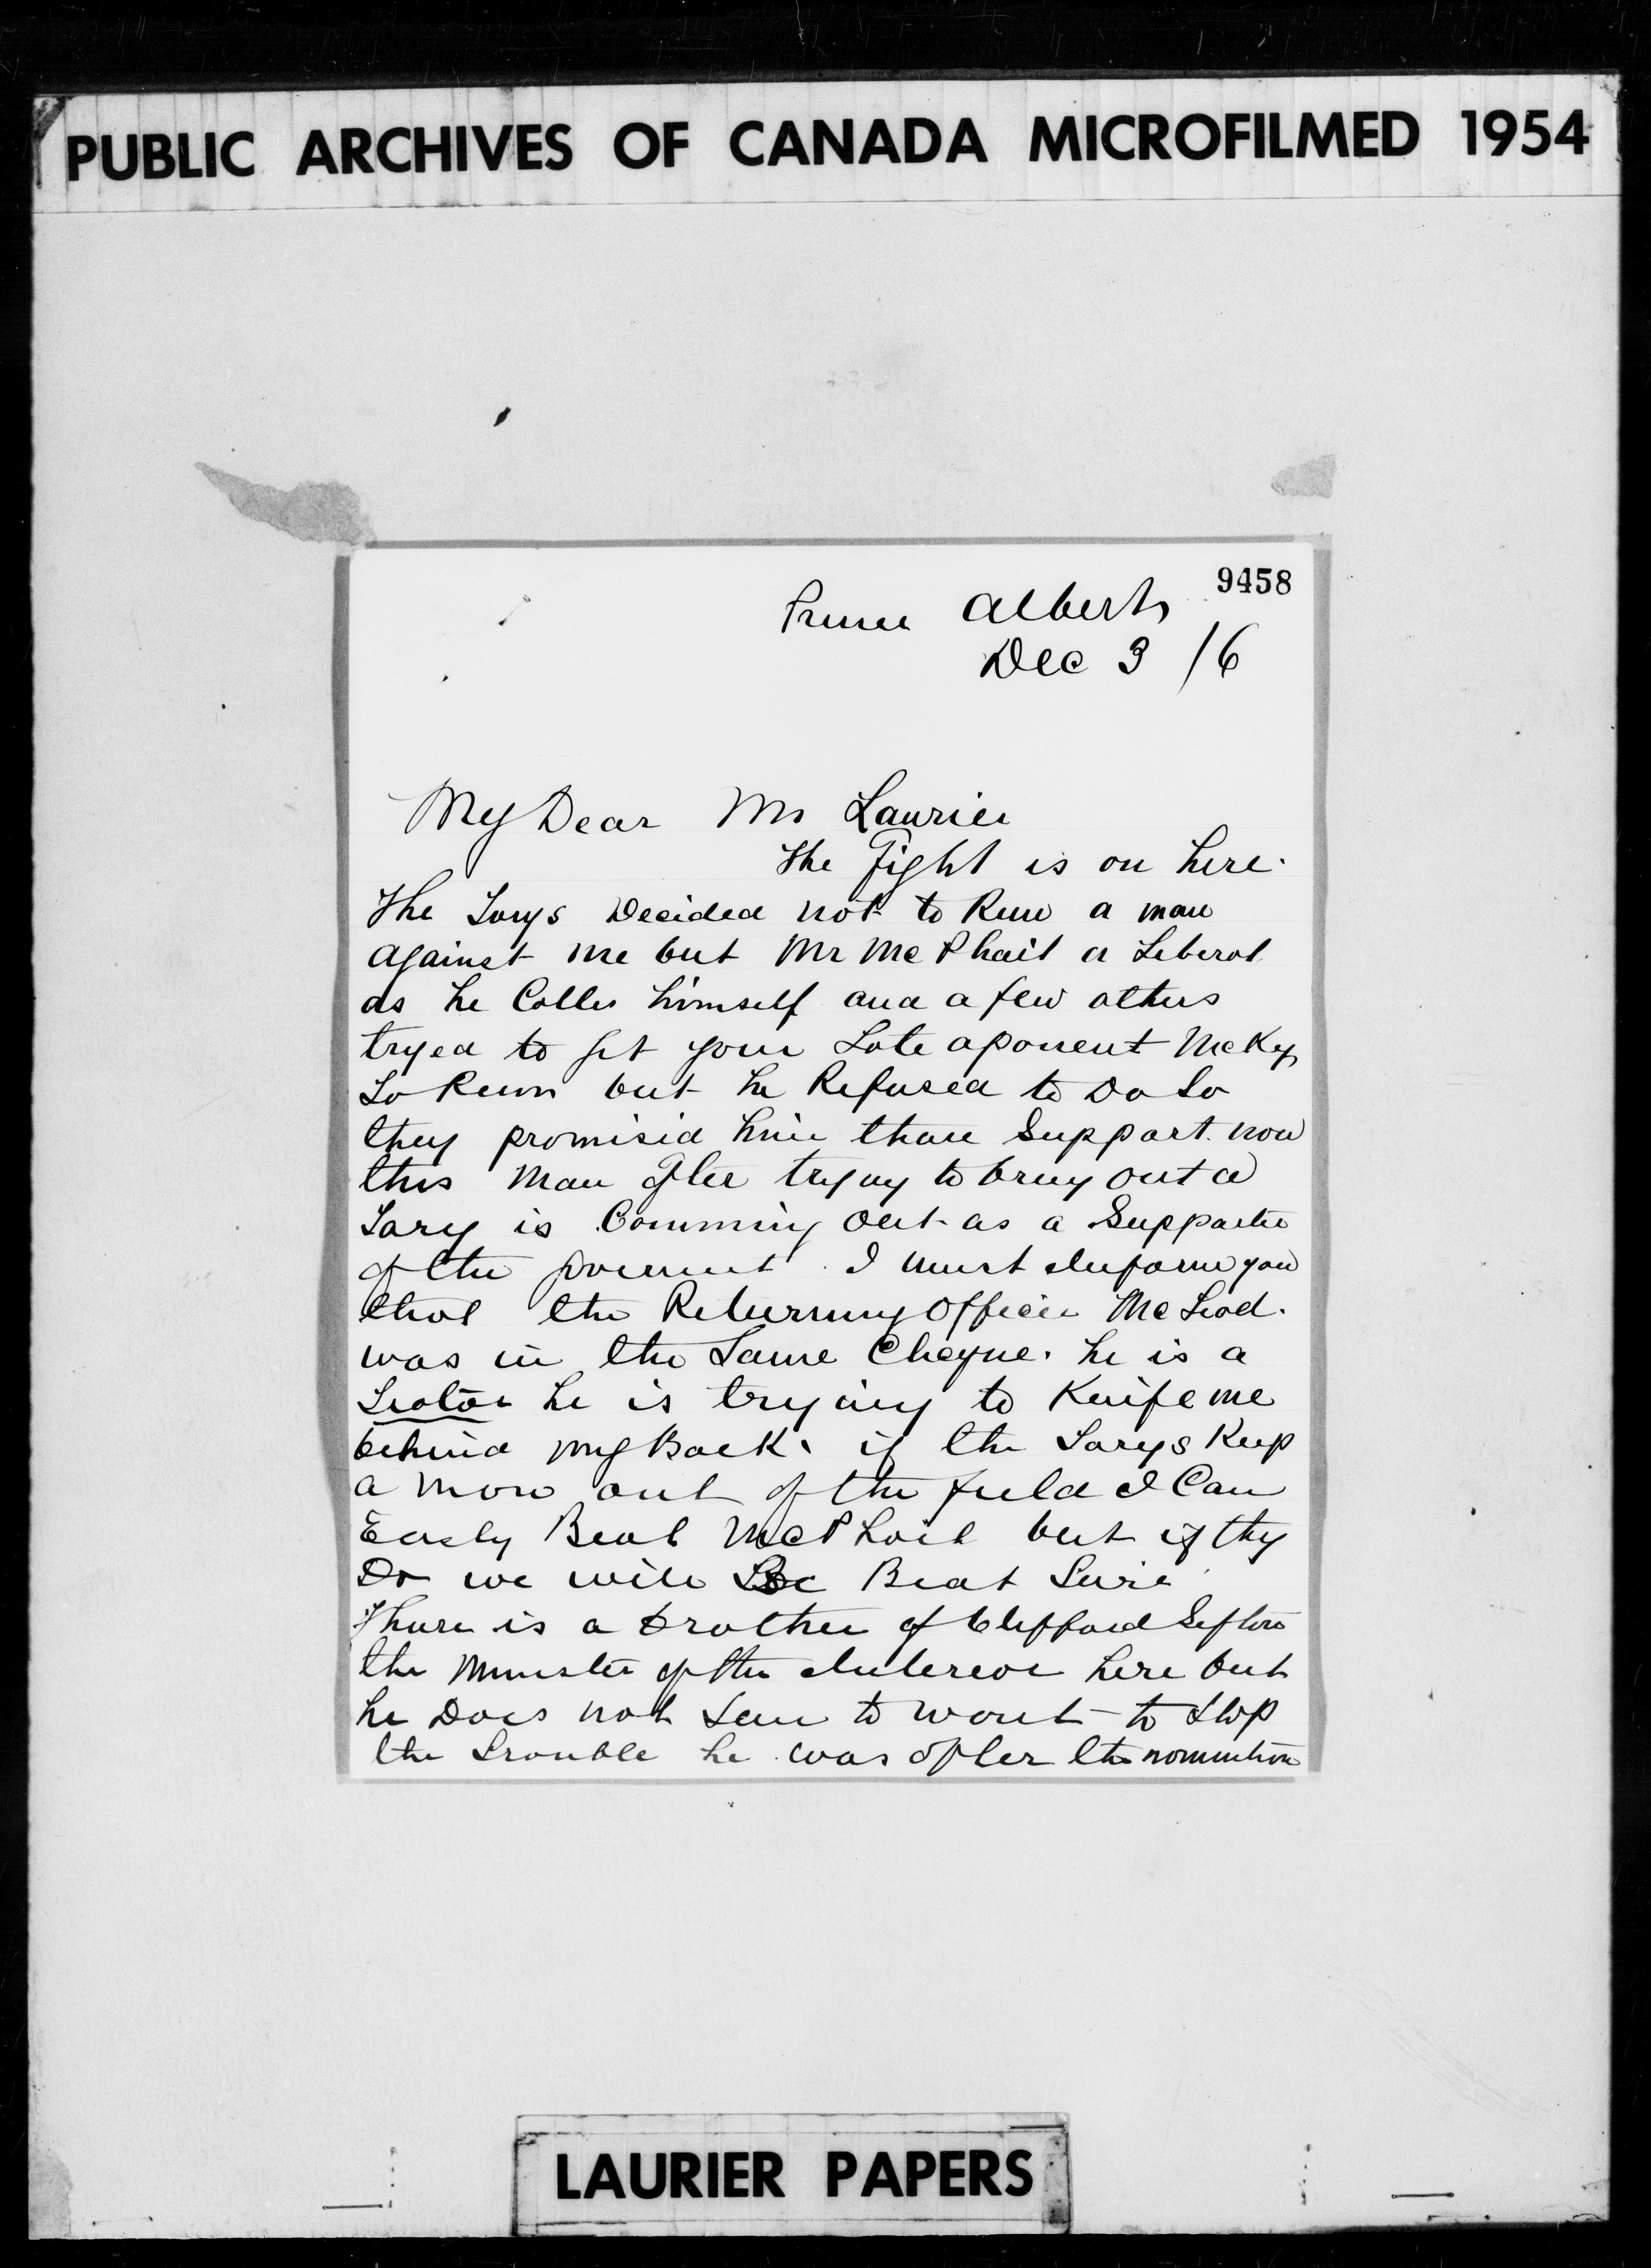 PUBLIC ARCHIVES OF CANADA MICROFILMED 1954
9458
Prince Albert
Dec 3 /6
My Dear Mr Laurier
The fight is on here.
The Torys Decided not to Run a man
against me but Mr McPhail a Liberal
as he Calles himself and a few others
tryed to get your Late aponent McKay
to Run but he Refused to Do So
they promisid him thare Support. now
this man after trying to bring out a
Tory is Comming Out as a Supporter
of the goverment. I must Inforum you
that the Returning Officer McLeod.
was in the Same Cleque. he is a
he is trying to Knife me
behind my Back. if the Torys Keep
a man out of the field I Can
Easly Beat McPhail but if thy
Do we will Be Beat Sure
Thare is a Brother of Clifford Sifton
the Minister of the Intereor here but
he Does not Seem to want to Stop
the Trouble he was after the nomintion
LAURIER PAPERS